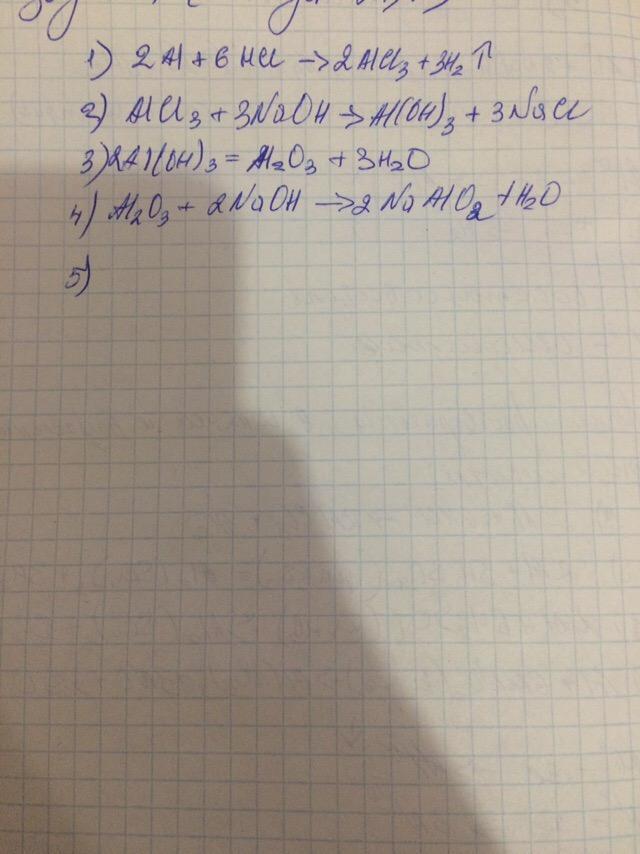 1) 2Al + 6HCl → 2AlCl₃ + 3H₂↑
2) AlCl₃ + 3NaOH → Al(OH)₃ + 3NaCl
3) 2Al(OH)₃ = Al₂O₃ + 3H₂O
4) Al₂O₃ + 2NaOH → 2NaAlO₂ + H₂O
5)